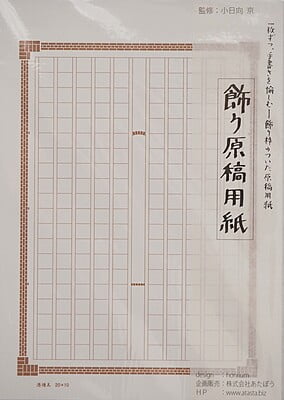 監修：小日向 京
一枚ずつ、手書きを愉しむ―飾り枠がついた原稿用紙
飾り原稿用紙
憑櫻墨 20×10
design : hornium
企画販売：株式会社あたぼう
HP : www.atasta.biz